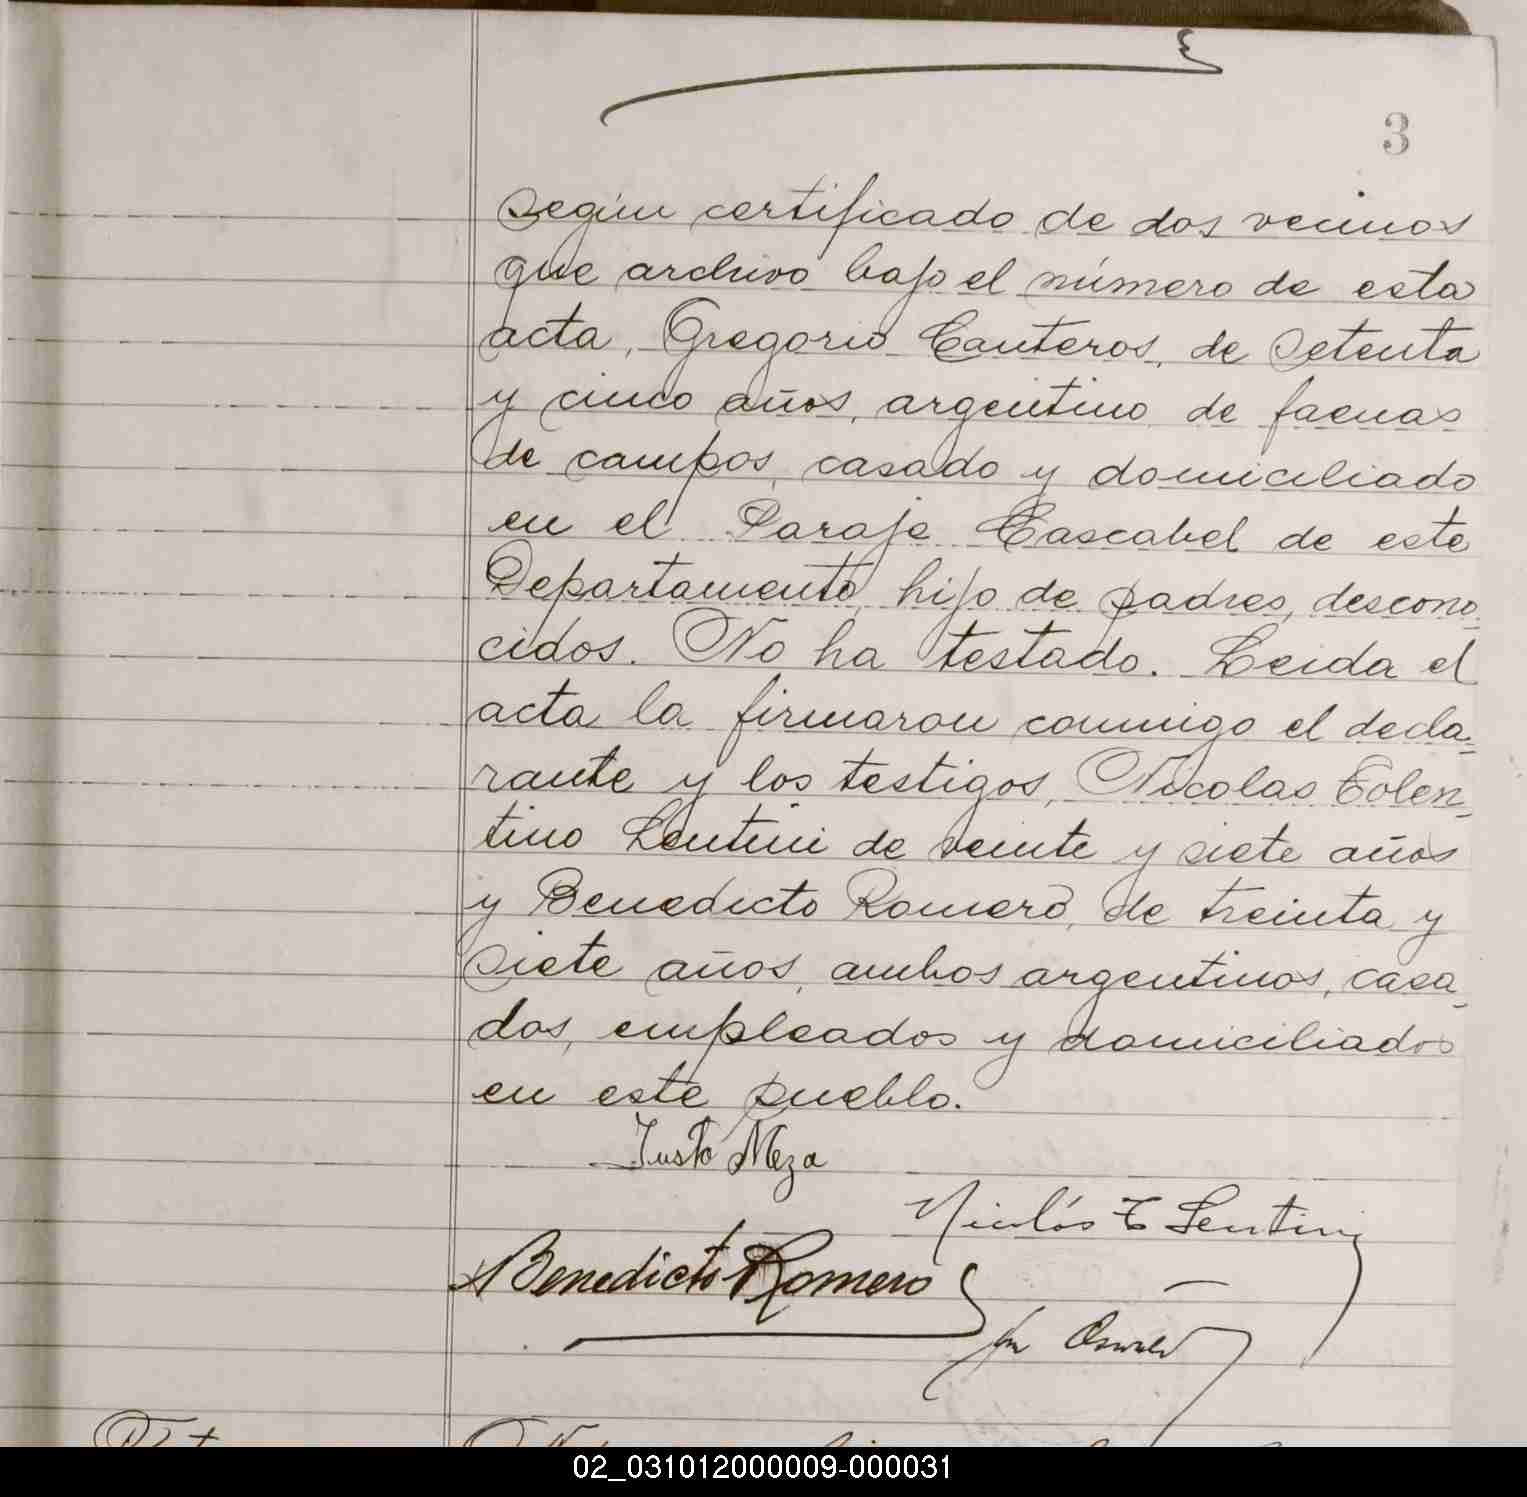 3
según certificado de dos vecinos
que archivo bajo el número de esta
acta, Gregorio Canteros, de setenta
y cinco años, argentino de faenas
de campos, casado y domiciliado
en el Paraje Cascabel de este
Departamento, hijo de padres, descono
cidos. No ha testado. Leida el
acta la firmaron conmigo el decla-
rante y los testigos, Nicolas Tolen-
tino Lentini de veinte y siete años
y Benedicto Romero, de treinta y
siete años, ambos argentinos, casa-
dos, empleados y domiciliados
en este pueblo.
Justo Meza
Nicolás T Lentini
Benedicto Romero
Oswald
02_031012000009-000031